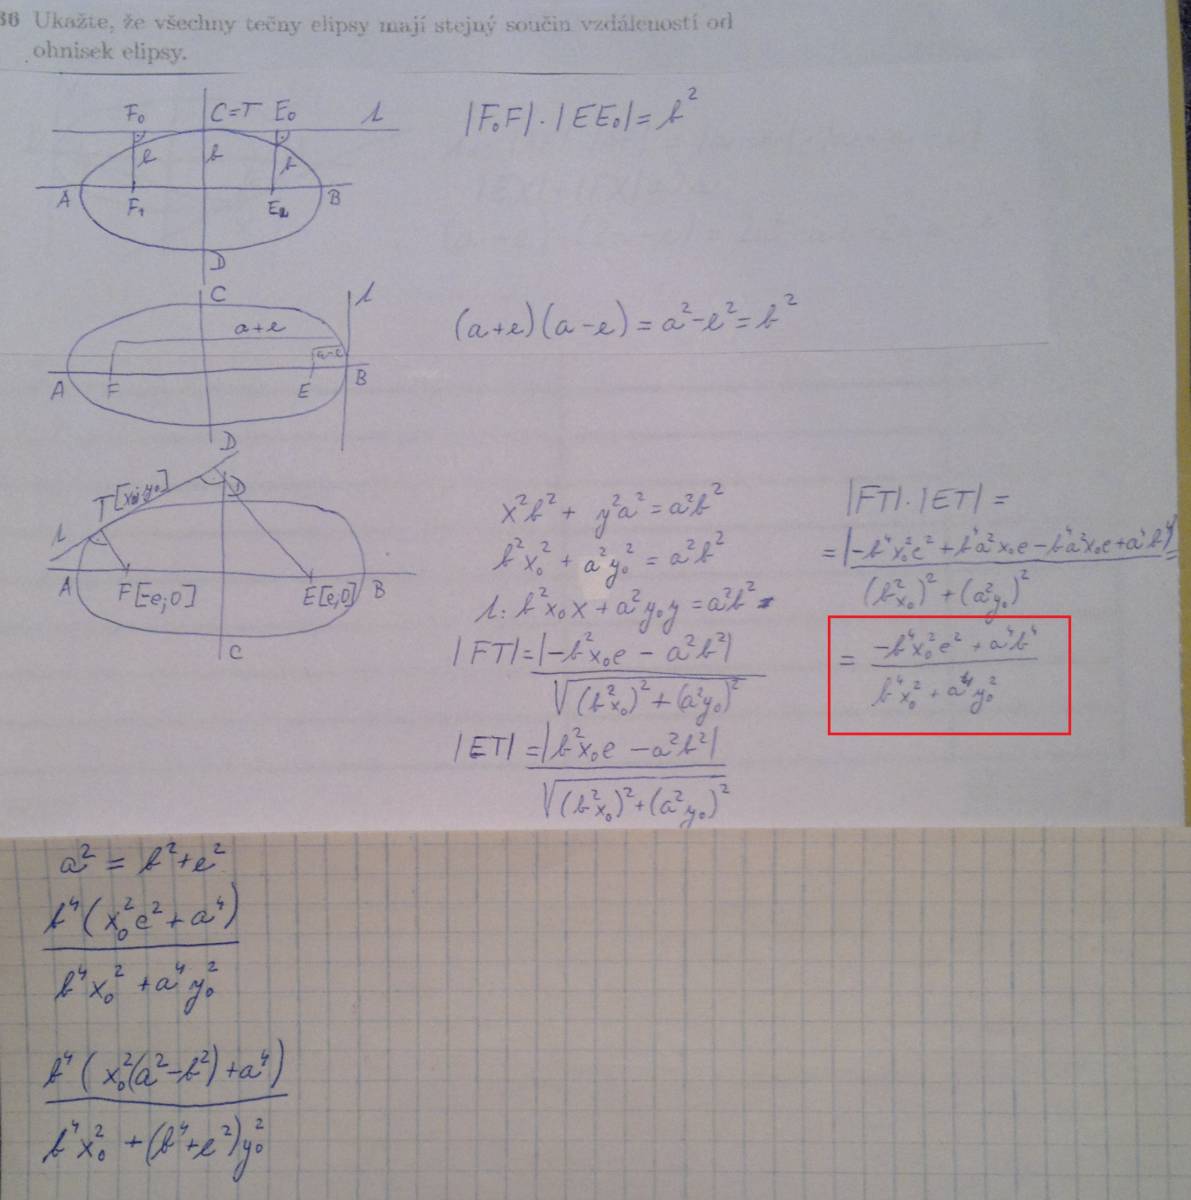 36 Ukažte, že všechny tečny elipsy mají stejný součin vzdáleností od
ohnisek elipsy.
F₀ C=T E₀ t
b b b
A F₁ E₂ B
D
|F₀F| · |EE₀| = b²
C t
a+e
a-e
A F E B
D
(a+e)(a-e) = a²-e² = b²
T[x₀;y₀] D
t
A F[-e;0] E[e;0] B
C
x²b² + y²a² = a²b²
b²x₀² + a²y₀² = a²b²
t: b²x₀x + a²y₀y = a²b²
|FT| = |-b²x₀e - a²b²|
√(b²x₀)² + (a²y₀)²
|ET| = |b²x₀e - a²b²|
√(b²x₀)² + (a²y₀)²
|FT| · |ET| =
= |-b⁴x₀²e² + b⁴a²x₀e - b⁴a²x₀e + a⁴b⁴| =
(b²x₀)² + (a²y₀)²
= -b⁴x₀²e² + a⁴b⁴
b⁴x₀² + a⁴y₀²
a² = b² + e²
b⁴(x₀²e² + a⁴)
b⁴x₀² + a⁴y₀²
b⁴(x₀²(a²-b²) + a⁴)
b⁴x₀² + (b⁴+e²)y₀²